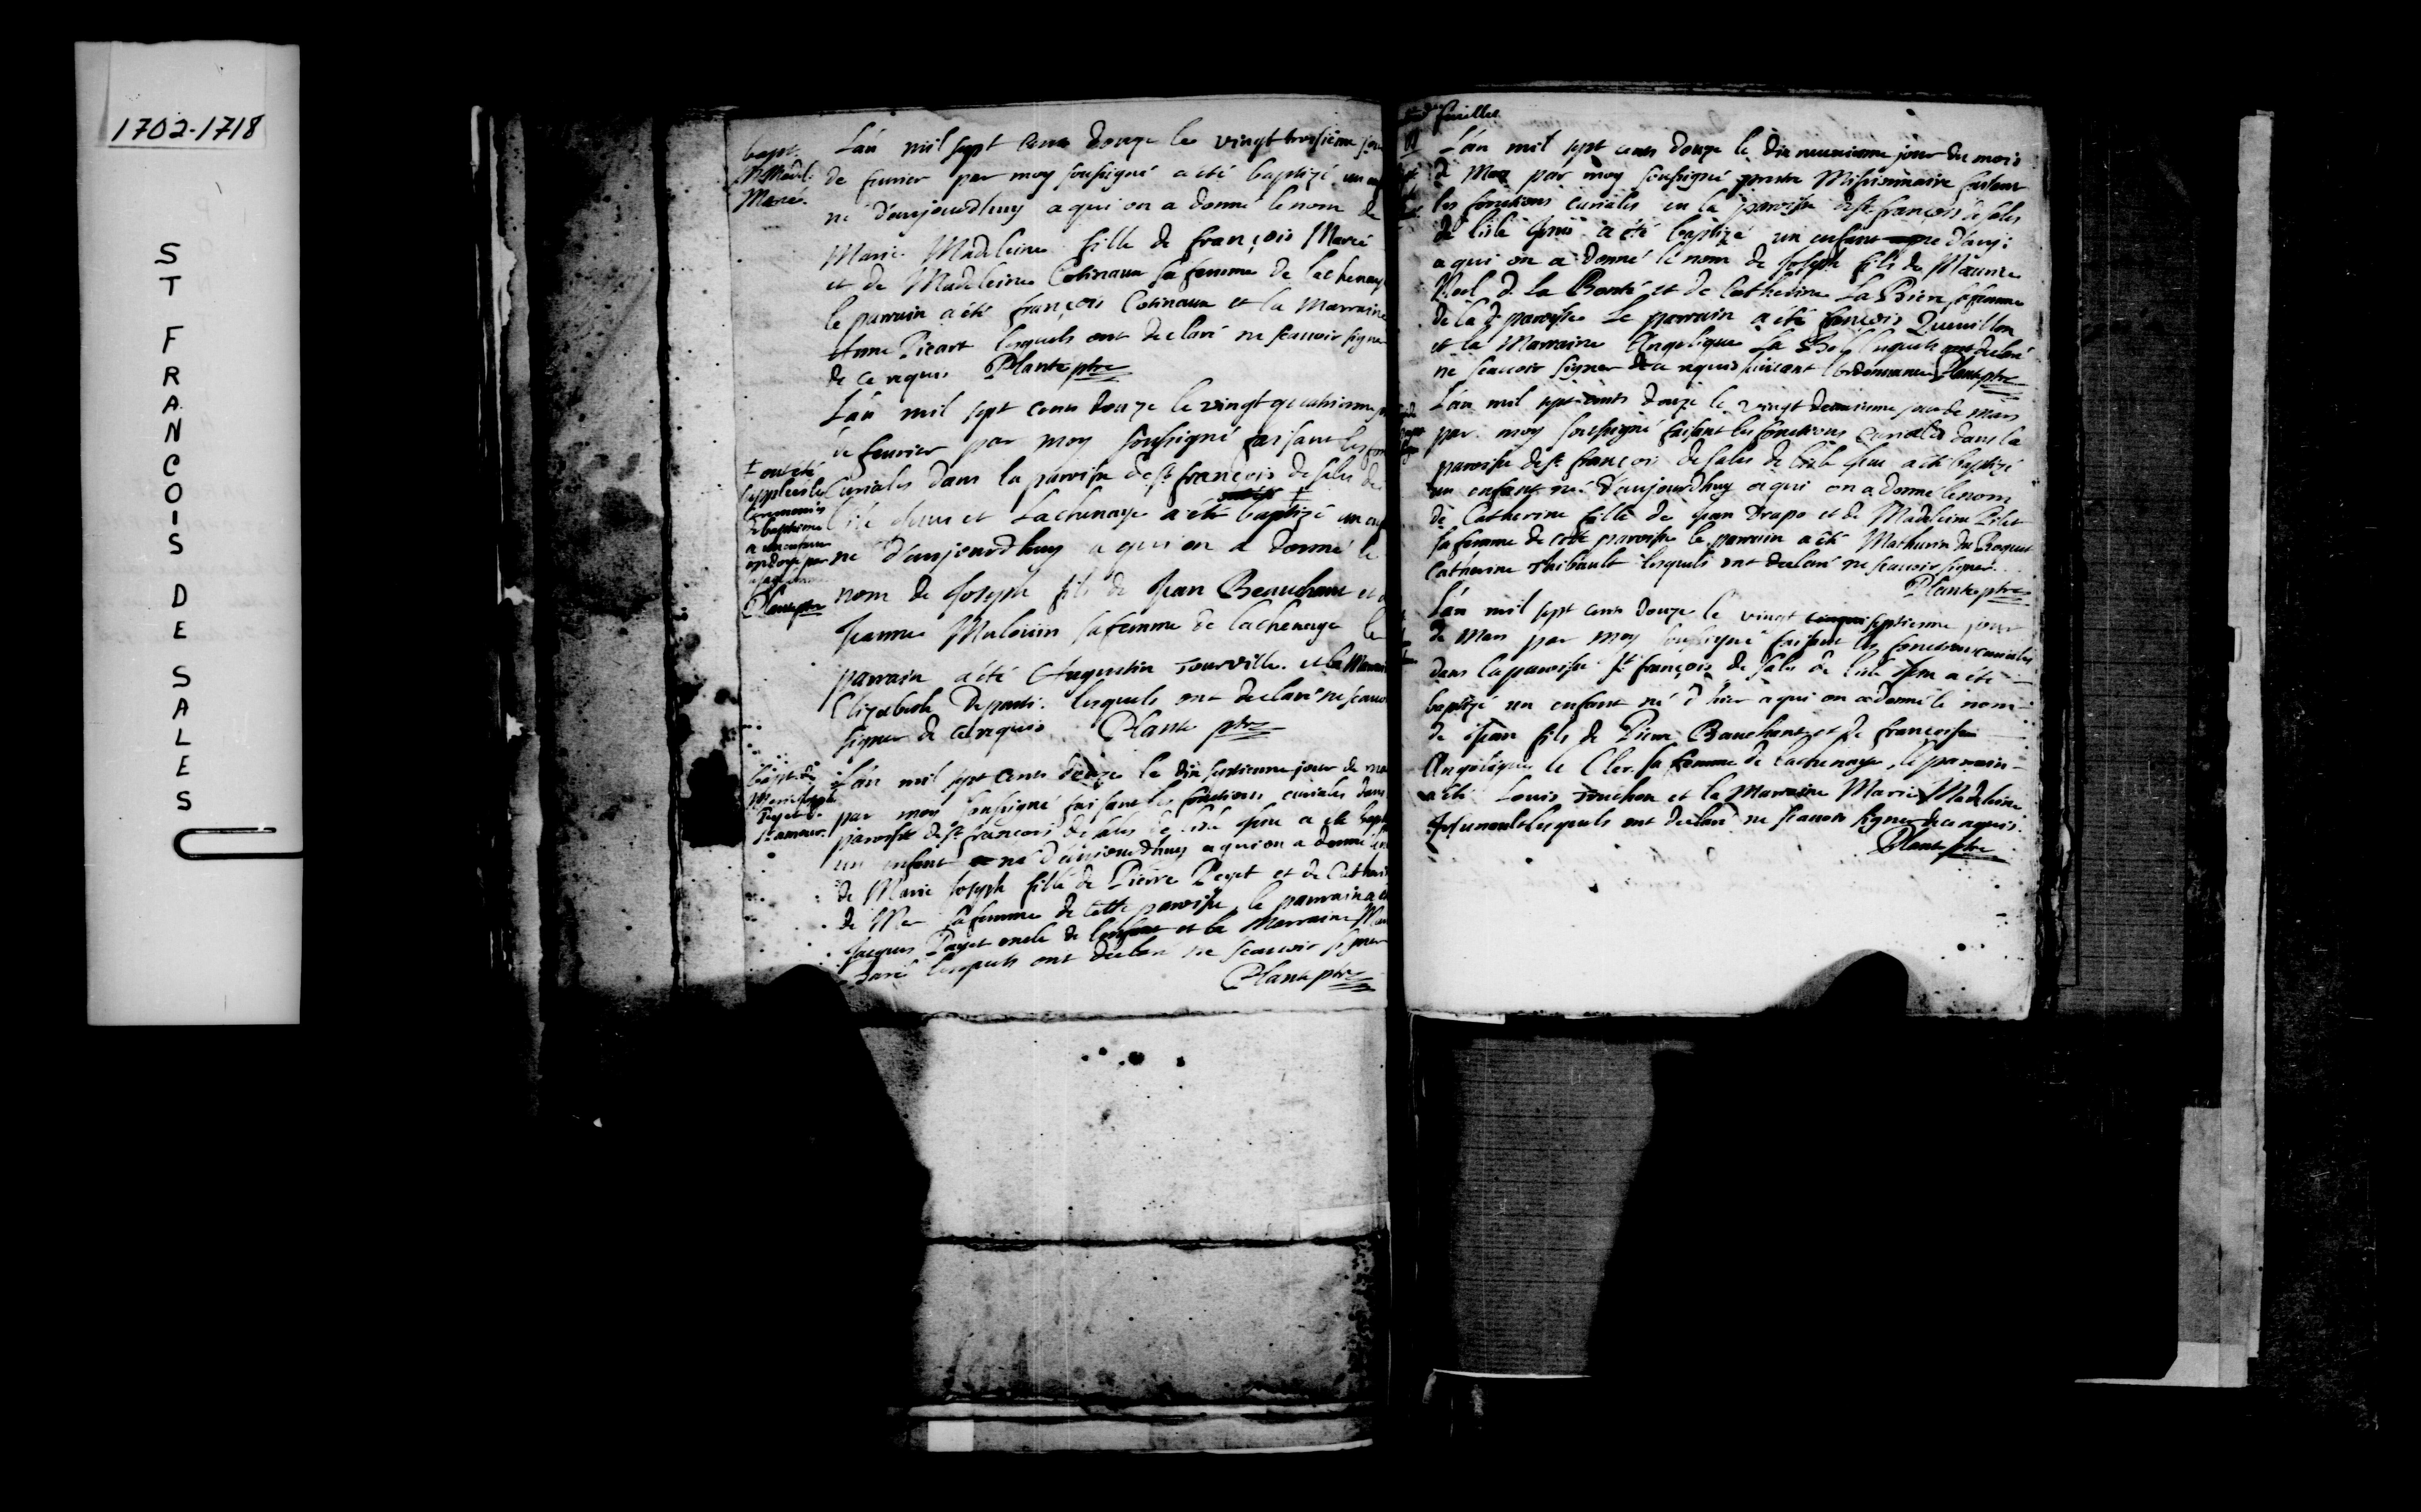 1702-1718
ST FRANCOIS DE SALES
bapt.
M. Madel.
Marié.
L'an mil sept cens douze le vingt troisieme jou
de fevrier par moy soussigné a été baptizé un
né d'aujourdhuy a qui on a donné le nom de
Marie Madeleine fille de françois Marié
et de Madeleine Cotineau sa femme de lachenay
le parrain a été françois Cotineau et la Marraine
Anne Picart lesquels ont declaré ne scavoir signer
de ce requis Plante ptre
L'an mil sept cens douze le vingt quatrieme
de fevrier par moy soussigné faisant les
Curiales dans la paroisse de st françois de sales de
l'ile Jesus et Lachenaye a été baptizé ‡ un
né d'aujourdhuy a qui on a donné le
nom de Joseph fils de Jean Beauchant et
Jeanne Mulouin sa femme de lachenaye le
parrain a été Augustin Tourville et la Marrai
Elizabeth lesquels ont declaré ne scavoi
signer de ce requis Plante ptre
‡ ont été
supplées les
Ceremonies
de baptême
a un enfant
ondoyé par
Plante ptre
bapt. de
Marie Joseph
Payet d.
St amour
L'an mil sept cens douze le dix septieme jour de
par moy soussigné faisant les fonctions curiales dans
paroisse de st francois de sales de lisle Jesu a été
un enfant né d'aujourdhuy a qui on a donné
de Marie Joseph fille de Pierre Peyet et de Catheri
de Mer sa femme de cette paroisse, le parrain a
Jacques Payet oncle de lenfant et la Marraine
lesquels ont declaré ne scavoir signer
Plante ptre
feuillet
L'an mil sept cens douze le dix neuvieme jour du mois
de Mars par moy soussigné prestre Missionnaire faisant
les fonctions curiales en la paroisse de st. françois de sales
de lisle Jesus a été baptizé un enfant né d'auj:
a qui on a donné le nom de Joseph fils de Maurice
Noel d. La Bonté et de Catherine La Brien sa femme
de la d. paroisse Le parrain a été françois Queuillon
et la Marraine Angelique La lesquels ont declaré
ne scavoir signer de ce requis suivant l'ordonnance Plante ptre
L'an mil sept cents douze le vingt deuxieme jour de mars
par moy soussigné faisant les fonctions curiales dans la
paroisse de st françois de sales de lisle Jesu a été baptizé
un enfant né d'aujourdhuy a qui on a donné le nom
de Catherine fille de Jean Drapo et de Madeleine Pilet
sa femme de cette paroisse le parrain a été Mathurin du
Catherine Thibault lesquels ont declaré ne scavoir signer.
Plante ptre
L'an mil sept cens douze le vingt septieme jour
de Mars par moy soussigné faisant les fonctions curiales
dans la paroisse st. françois de sales de lisle Jesu a été
baptizé un enfant né d'hier a qui on a donné le nom
de Jean fils de Pierre Bauchant et de francoise
Angelique le Cler sa femme de Lachenaye, le parrain
a été Louis Truchon et la Marraine Marie Madeleine
lesquels ont declaré ne scavoir signer de ce requis.
Plante ptre